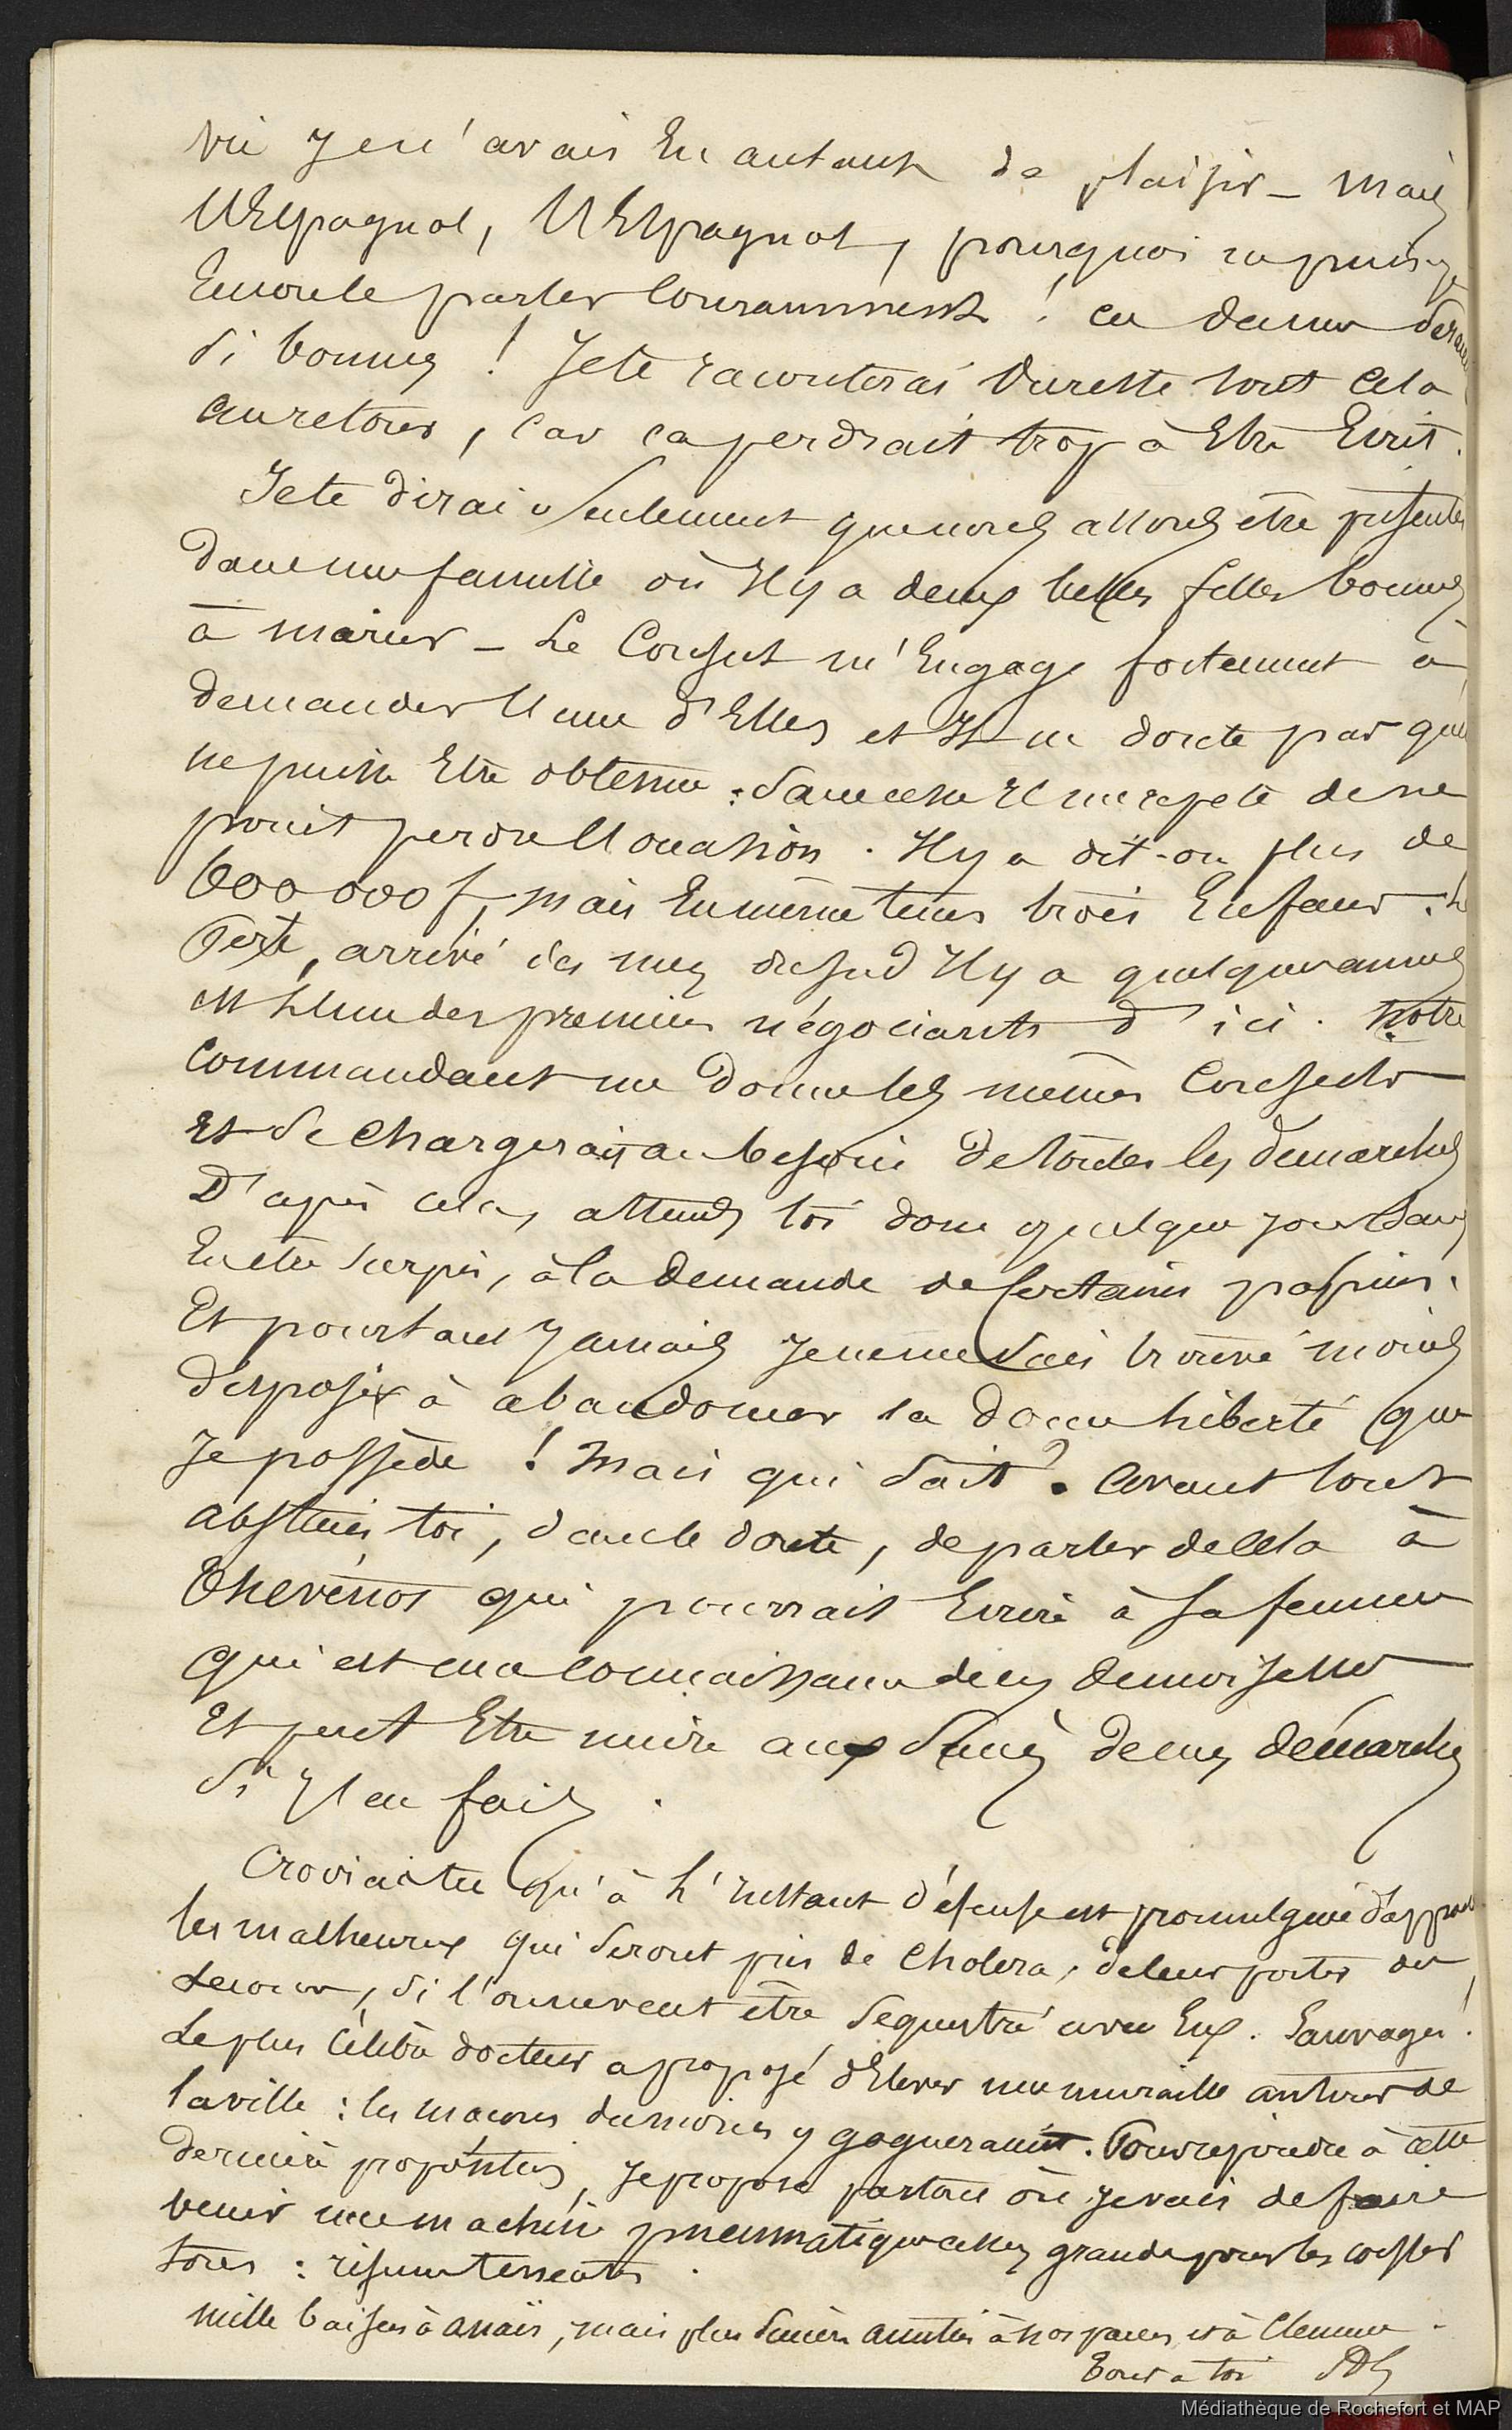 vie je n'avais eu autant de plaisir - mais
l'Espagnol, l'Espagnol, pourquoi ne puis-je
encore le parler couramment ! ces dames
si bonnes ! Je te raconterai du reste tout cela
au retour, car ça perdrait trop à être écrit.
Je te dirai seulement que nous allons être présentés
dans une famille où il y a deux belles filles bonnes
à marier - Le Consul m'engage fortement à
demander l'une d'elles et il ne doute pas que
ne puisse être obtenue : sans cesse il me répète de ne
point perdre l'occasion. Il y a dit-on plus de
600 000 f, mais en même tems trois enfans. Le
Père, arrivé ici il y a quelques années
est l'un des premiers négociants d'ici. Notre
commandant me donne les mêmes conseils
et se chargerait au besoin de toutes les démarches
D'après cela, attends toi donc quelque jour sans
en être surpris, à la demande de certains papiers.
Et pourtant jamais je ne me suis trouvé moins
disposé à abandonner la douce liberté que
je possède ! Mais qui sait ? avant tout
abstiens toi, dans le doute, de parler de cela à
Thévenot qui pourrait écrire à sa femme
qui est une connaissance de ces demoiselles
et peut être nuire aux succès de mes démarches
si j'en fais.
Croirais tu qu'à l'instant défense est promulguée d'approcher
les malheureux qui seront pris de choléra, de leur porter du
secours, si l'on ne veut être séquestré avec eux. Sauvages !
Le plus célèbre docteur a proposé d'élever une muraille autour de
la ville : les maçons du moins y gagneraient. Pour répondre à cette
dernière proposition, je propose partout où je vais de faire
venir une machine pneumatique assez grande pour les coiffer
tous :
mille baisers à Anaïs, mais plus sincères amitiés à nos parens et à Clémence.
Tout à toi
Médiathèque de Rochefort et MAP